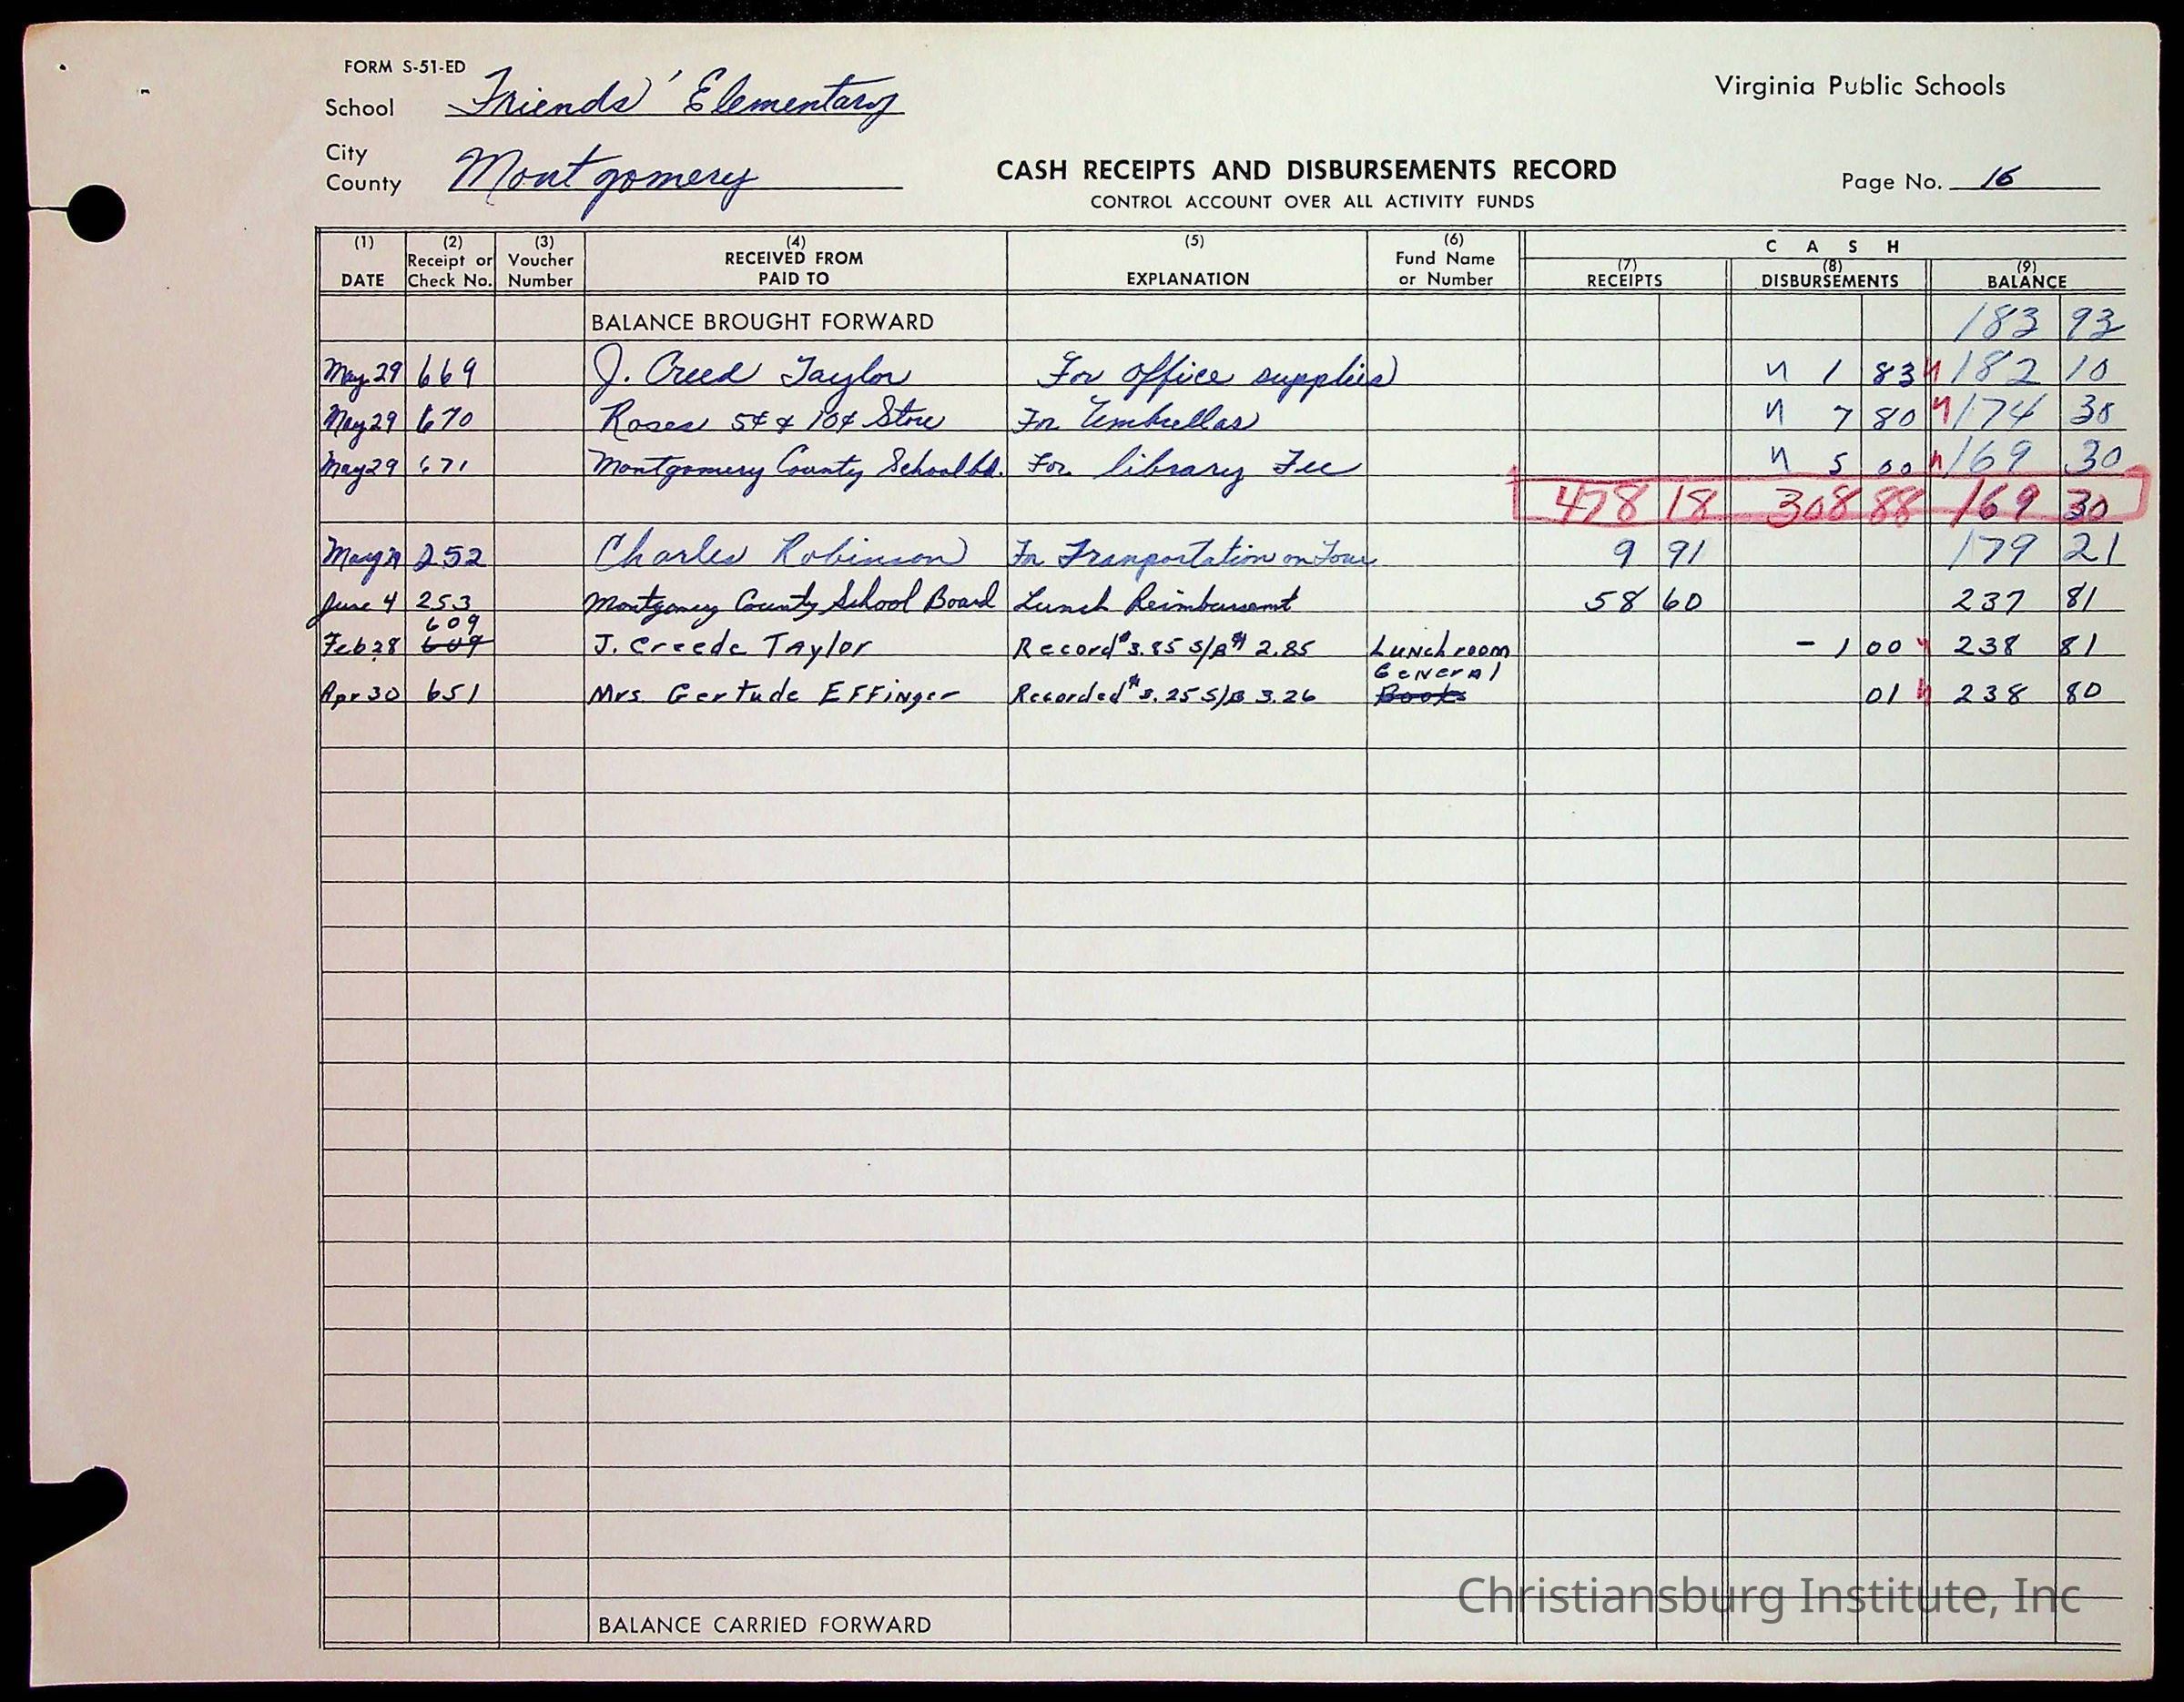 FORM S-51-ED
School Friends' Elementary
Virginia Public Schools
City
County Montgomery
CASH RECEIPTS AND DISBURSEMENTS RECORD
CONTROL ACCOUNT OVER ALL ACTIVITY FUNDS
Page No. 16
(1) DATE
(2) Receipt or Check No.
(3) Voucher Number
(4) RECEIVED FROM PAID TO
(5) EXPLANATION
(6) Fund Name or Number
CASH
(7) RECEIPTS
(8) DISBURSEMENTS
(9) BALANCE
BALANCE BROUGHT FORWARD 183 93
May 29 669 J. Creed Taylor For office supplies 1 83 182 10
May 29 670 Roses 5¢ & 10¢ Store For Umbrellas 7 80 174 30
May 29 671 Montgomery County School bd. For library Fee 5 00 169 30
478 18 308 88 169 30
May 252 Charles Robinson For Tranportation on Tour 9 91 179 21
June 4 253 Montgomery County School Board Lunch Reimbursemt 58 60 237 81
609
Feb 28 609 J. Creede Taylor Record $3.85 S/B $2.85 Lunchroom - 1 00 238 81
General
Apr 30 651 Mrs. Gertude Effinger Recorded $3.25 S/B 3.26 Books 01 238 80
BALANCE CARRIED FORWARD
Christiansburg Institute, Inc